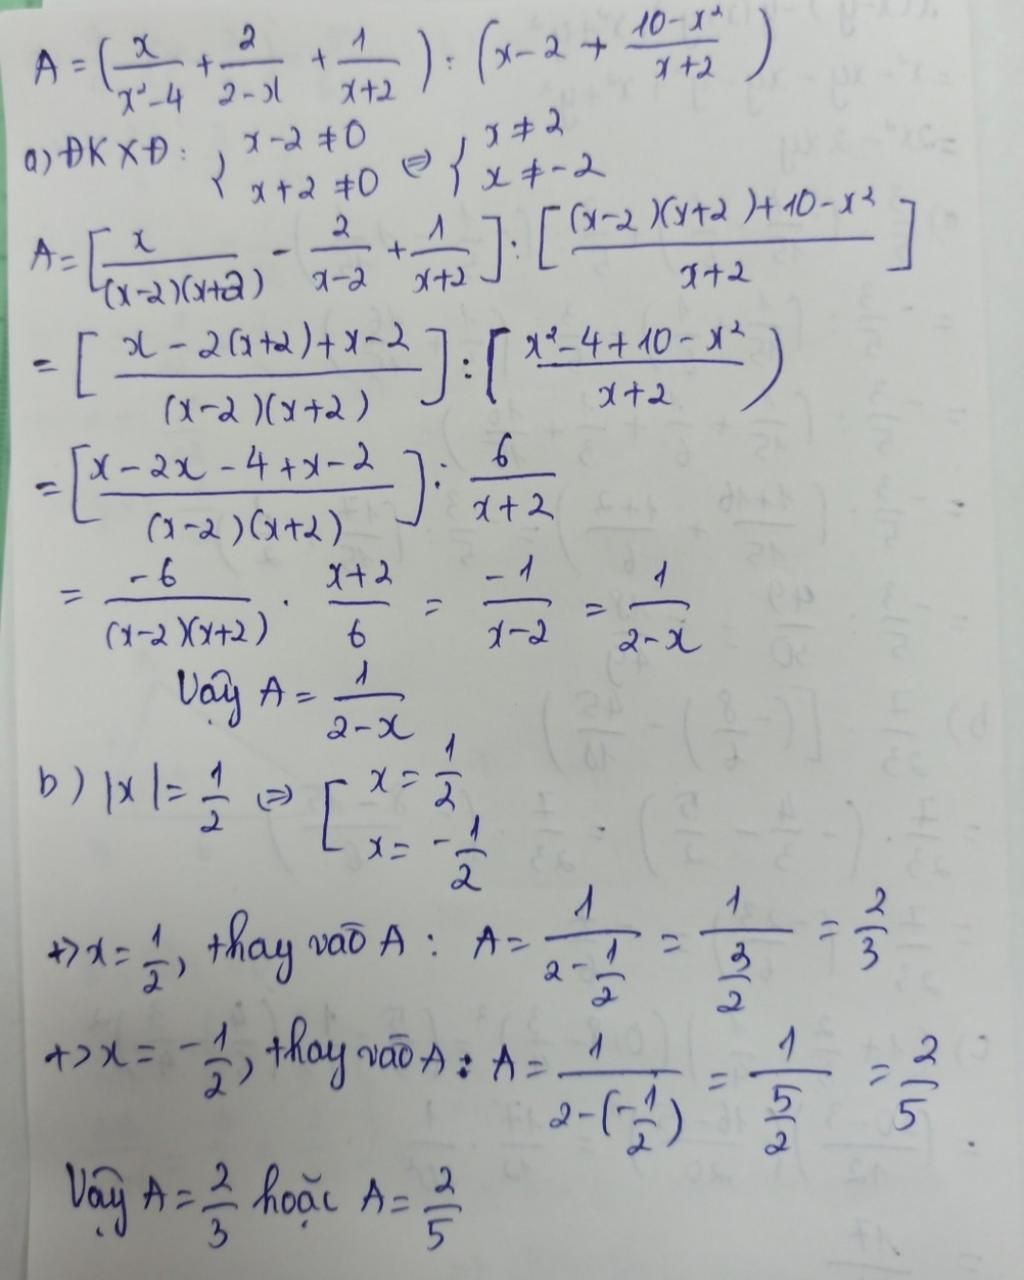 A = (x/(x²-4) + 2/(2-x) + 1/(x+2)) : (x-2 + (10-x²)/(x+2))
a) ĐKXĐ: { x-2 ≠ 0 ; x+2 ≠ 0 ⇔ { x ≠ 2 ; x ≠ -2
A = [x/((x-2)(x+2)) - 2/(x-2) + 1/(x+2)] : [((x-2)(x+2)+10-x²)/(x+2)]
= [(x-2(x+2)+x-2)/((x-2)(x+2))] : [(x²-4+10-x²)/(x+2))
= [(x-2x-4+x-2)/((x-2)(x+2))] : 6/(x+2)
= -6/((x-2)(x+2)) . (x+2)/6 = -1/(x-2) = 1/(2-x)
Vậy A = 1/(2-x)
b) |x| = 1/2 ⇔ [ x = 1/2 ; x = -1/2
+> x = 1/2, thay vào A : A = 1/(2-1/2) = 1/(3/2) = 2/3
+> x = -1/2, thay vào A : A = 1/(2-(-1/2)) = 1/(5/2) = 2/5
Vậy A = 2/3 hoặc A = 2/5